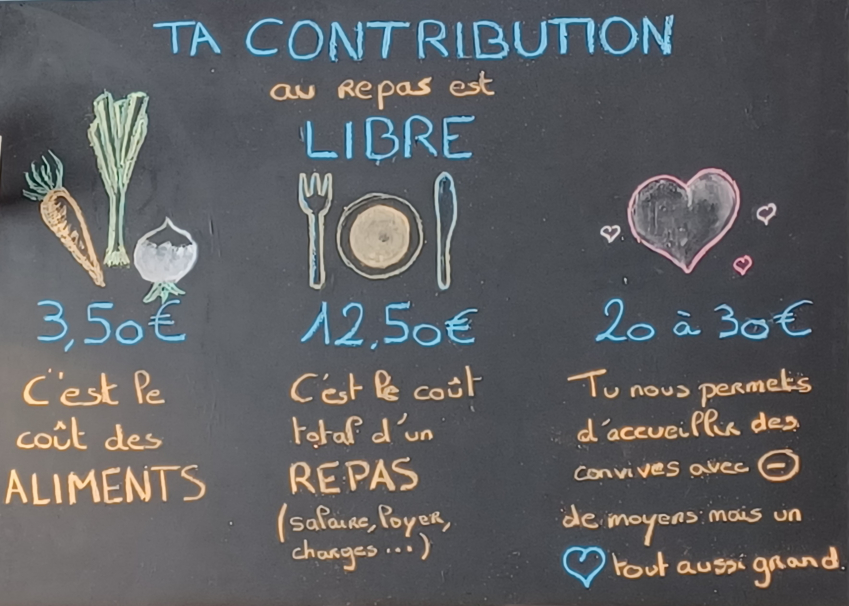 TA CONTRIBUTION
au Repas est
LIBRE
3,50€
C'est le
coût des
ALIMENTS
12,50€
C'est le coût
total d'un
REPAS
(salaire, loyer,
charges...)
20 à 30€
Tu nous permets
d'accueillir des
convives avec ⊖
de moyens mais un
♡ tout aussi grand.